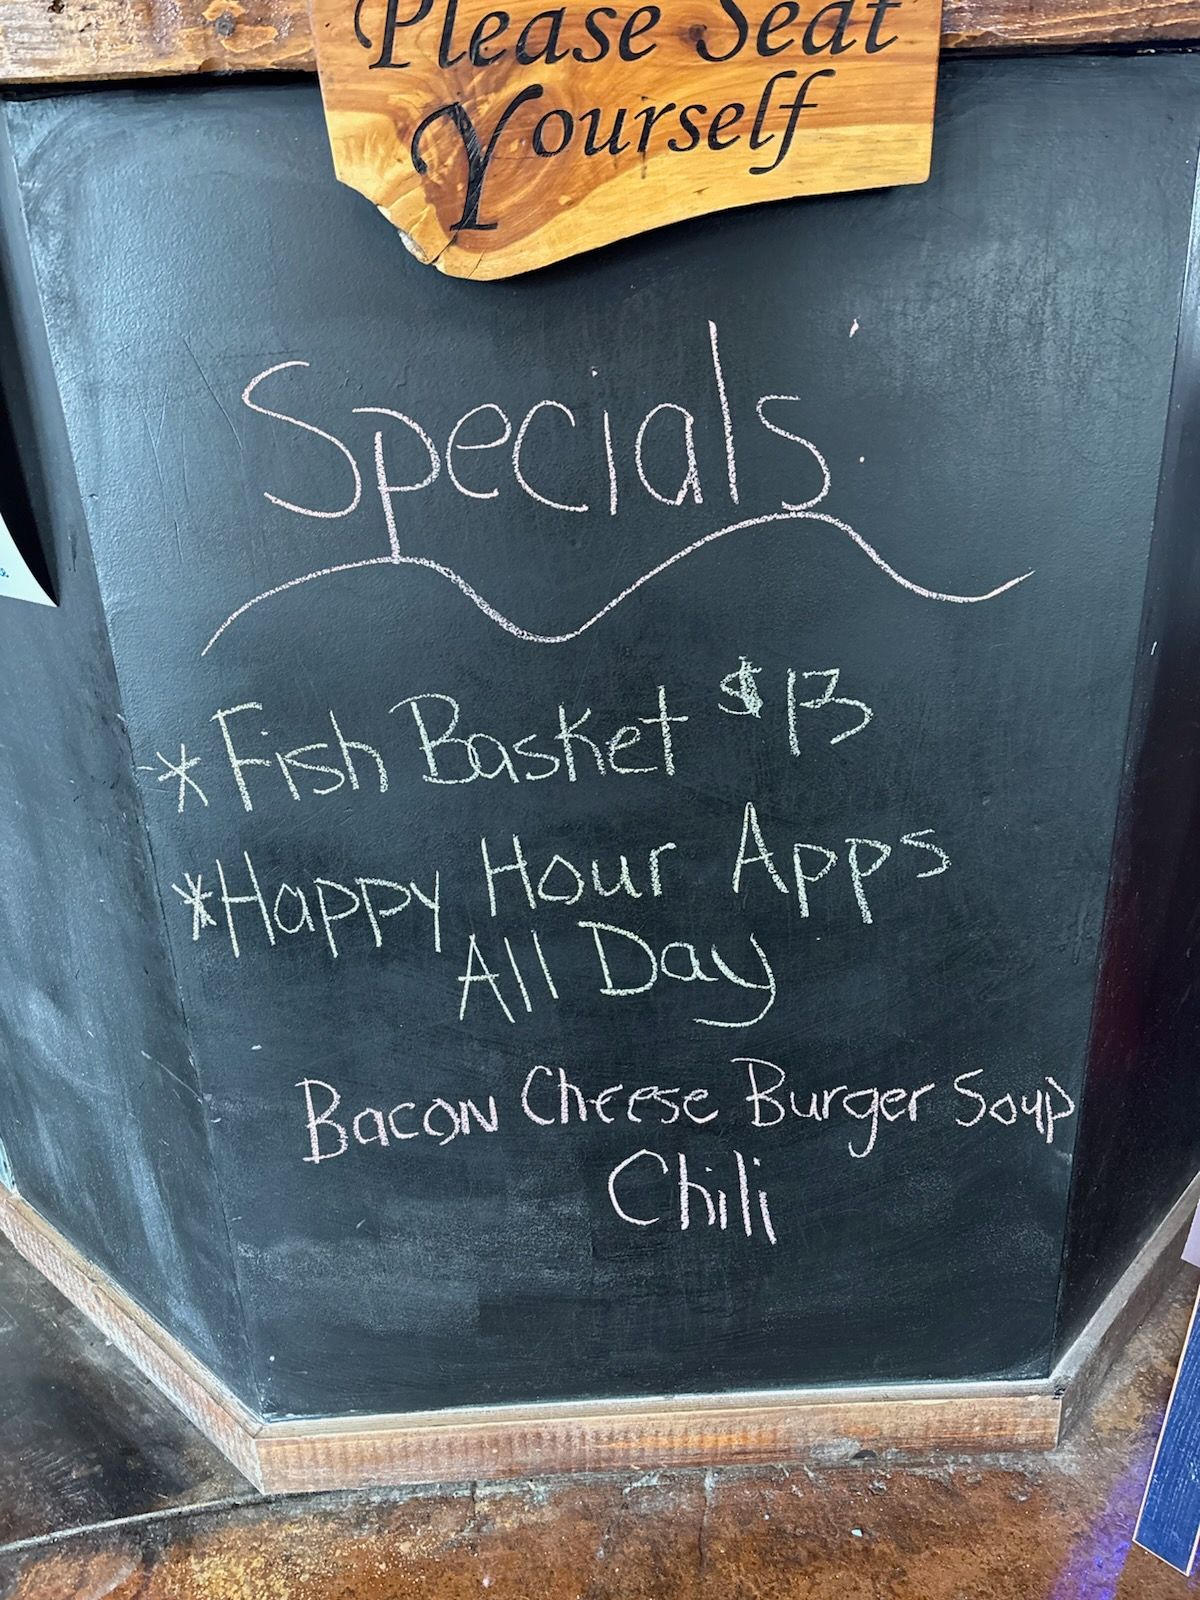 Please Seat
Yourself
Specials:
*Fish Basket $13
*Happy Hour Apps
All Day
Bacon Cheese Burger Soup
Chili